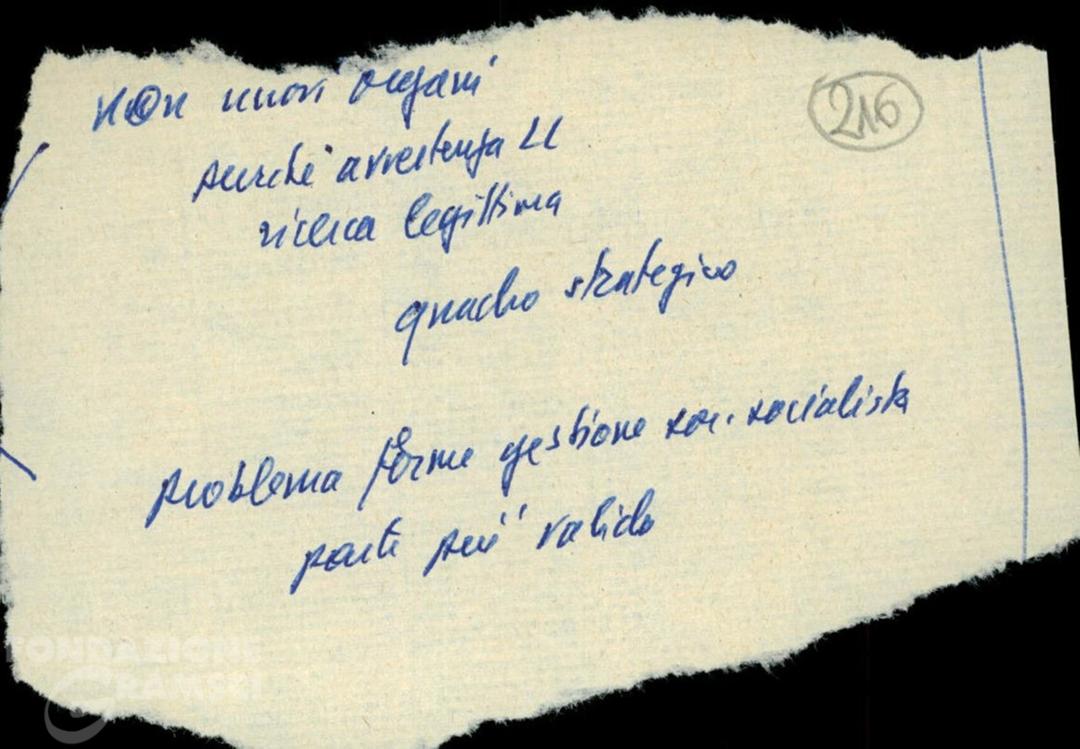 non nuovi organi
216
purché avvertenza LL
ricerca legittima
quadro strategico
problema forme gestione soc. socialista
parte più valida
FONDAZIONE
GRAMSCI